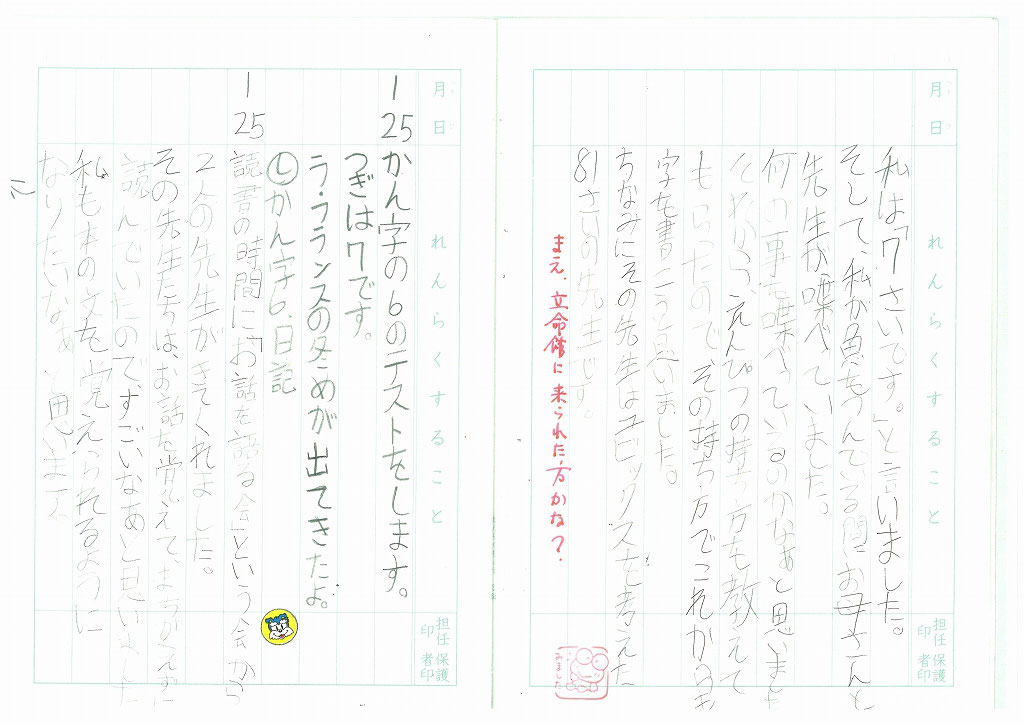 月日
れんらくすること
担任印
保護者印
私は「7さいです。」と言いました。
そして、私が魚をつんでいる間にお母さんと
先生が喋べっていました。
何の事を喋べっているのかなぁと思いました
それから、えんぴつの持ち方を教えて
もらったので、その持ち方でこれから
字を書こうと思いました。
ちなみにその先生はユビックスを考えた
81さいの先生です。
まえ、立命館に来られた方かな？
みました
月日
れんらくすること
担任印
保護者印
1 25 かん字の6のテストをします。
つぎは7です。
う・うランスの冬めが出てきたよ。
Ⓛかん字6、日記
1 25 読書の時間に「お話を語る会」という会から
2人の先生がきてくれました。
その先生たちは、お話を覚えて、まちがえずに
読んでいたので、すごいなあと思いました
私も本の文を覚えられるように
なりたいなぁと思いました